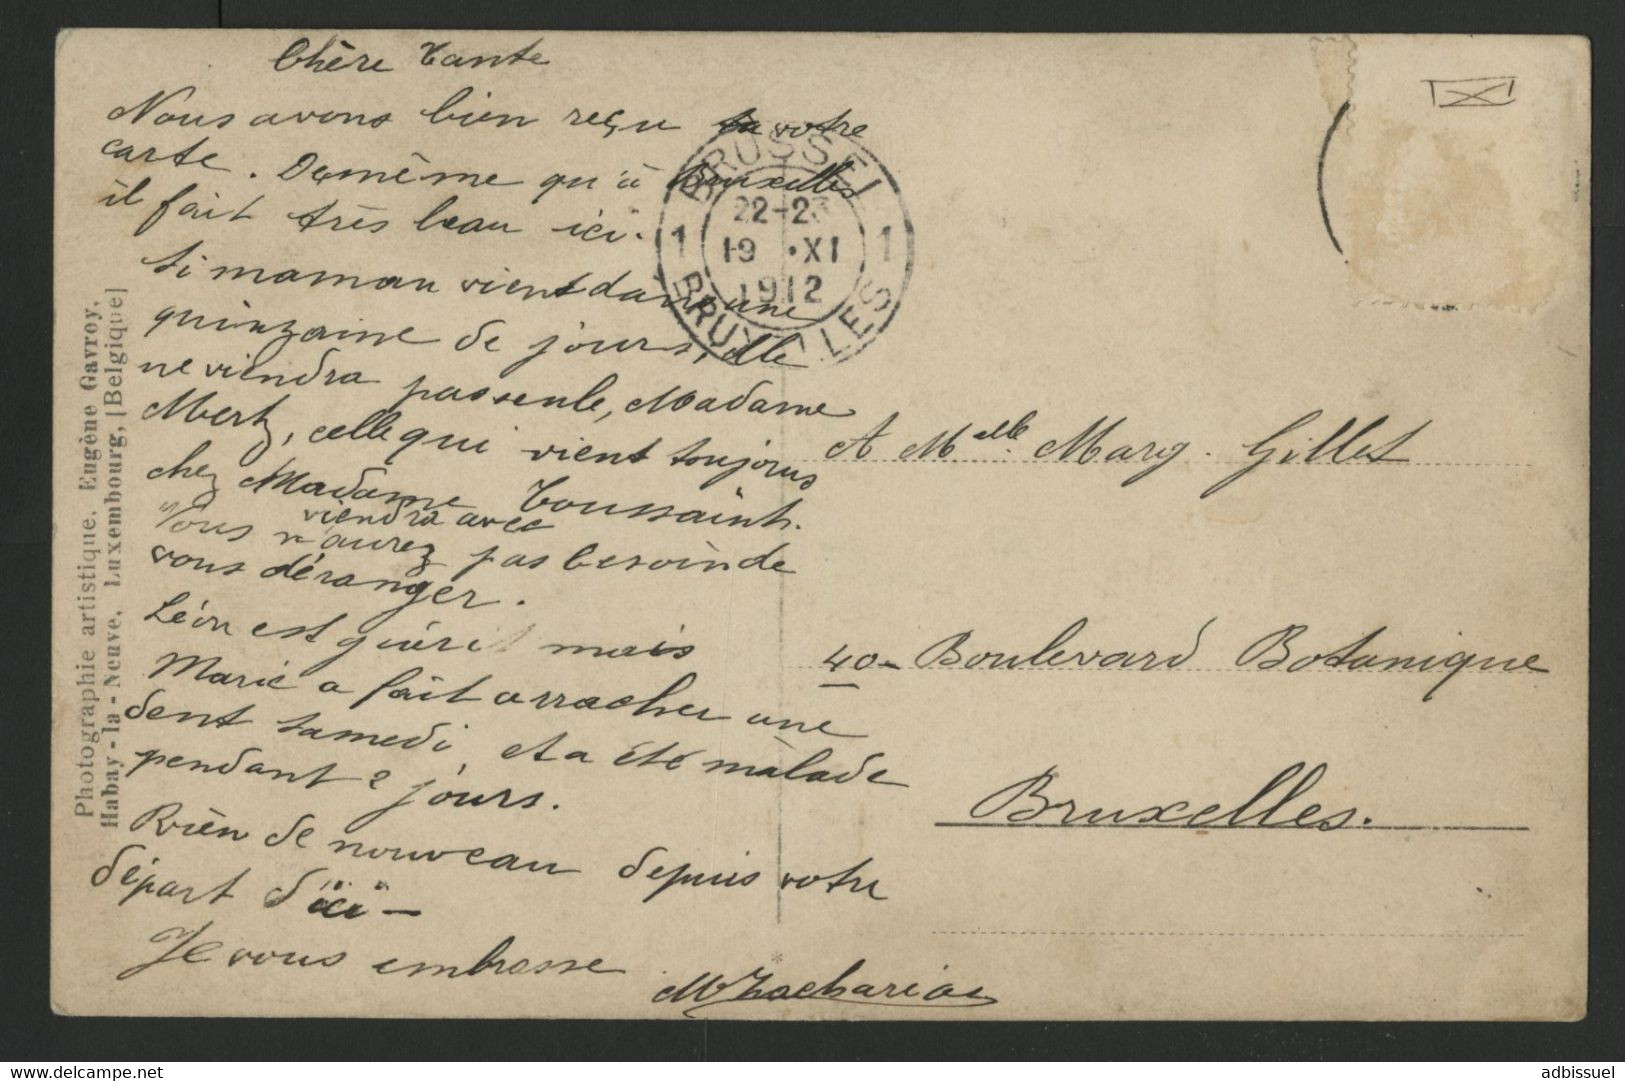 Chère Tante
Nous avons bien reçu votre
carte. De même qu'à Bruxelles
il fait très beau ici.
Si maman vient dans une
quinzaine de jours, elle
ne viendra pas seule, Madame
Mertz, celle qui vient toujours
chez Madame Toussaint.
viendra avec
Vous n'aurez pas besoin de
vous déranger.
Léon est guéri mais
Marie a fait arracher une
dent samedi, et a été malade
pendant 2 jours.
Rien de nouveau depuis votre
départ d'ici —
Je vous embrasse
M Zacharias
BRUSSEL
22-23
1 19 •XI 1
1912
BRUXELLES
A Melle Marg. Gillet
40 - Boulevard Botanique
Bruxelles.
Photographie artistique, Eugène Gavroy,
Habay-la-Neuve, Luxembourg, [Belgique]
delcampe.net
adbissuel